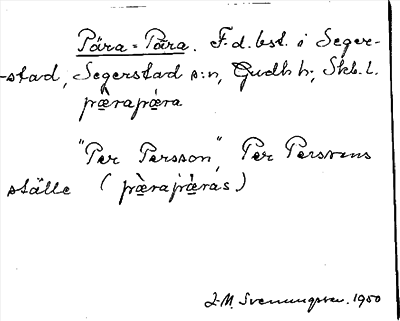 Pära-Pära. F.d. bst. i Seger-
-stad, Segerstad s:n, Gudh h:, Skb. l.
pæ̀rapǽra
"Per Persson", Per Perssons
ställe (pæ̀rapǽras)
J-M. Svenungsson. 1950